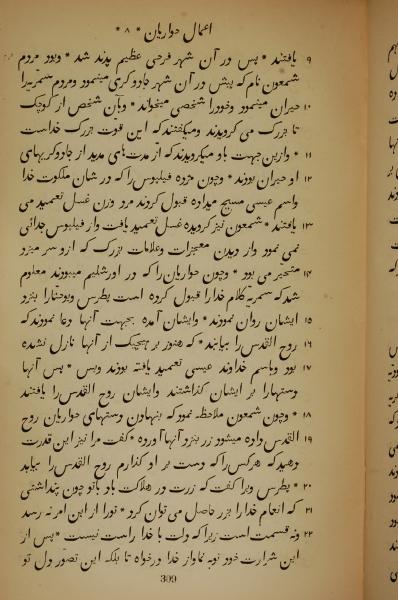 اعمال حواریان * ۸ *
۹ یافتند * پس در آن شهر فرحی عظیم پدید شد * وبود مردم
شمعون نام که پیش در آن شهر جادوگری مینمود ومردم سمریه را
۱۰ حیران مینمود وخودرا شخصی میخواند * وبآن شخص از کوچک
تا بزرگ می گرویدند ومیگفتند که این قوّت بزرگ خداست
۱۱ * وازین جهت باو میگرویدند که از مدت‌های مدید از جادوگریهای
۱۲ او حیران بودند * وچون مژده فیلپوس را که در شان ملکوت خدا
واسم عیسی مسیح میداد قبول کردند مرد وزن غسل تعمید می
۱۳ یافتند * شمعون نیز گرویده غسل تعمید یافت واز فیلپوس جدائی
نمی نمود واز دیدن معجزات وعلامات بزرگ که ازو سر میزد
۱۴ متحیّر می بود * وچون حواریان را که در اورشلیم میبودند معلوم
شد که سمریه کلام خدارا قبول کرده است پطرس ویوحنّارا بنزد
۱۵ ایشان روان نمودند * وایشان آمده بجهت آنها دعا نمودند که
۱۶ روح القدس را بیابند * که هنوز بر هیچیک از آنها نازل نشده
۱۷ بود وباسم خداوند عیسی تعمید یافته بودند وبس * پس آنها
دستهارا بر ایشان گذاشتند وایشان روح القدس را یافتند
۱۸ * وچون شمعون ملاحظه نمود که بنهادن دستهای حواریان روح
۱۹ القدس داده میشود زر بنزد آنها آورده * گفت مرا نیز این قدرت
دهید که هرکس را که دست بر او گذارم روح القدس را بیابد
۲۰ * پطرس ویرا گفت که زرت در هلاکت باد باتو چون پنداشتی
۲۱ که انعام خدارا بزر حاصل می توان کرد * تورا ازین امر نه رسد
۲۲ ونه قسمت است زیرا که دلت با خدا راست نیست * پس از
این شرارت خود توبه نما واز خدا درخواه تا بلکه این تصوّر دل تو
309